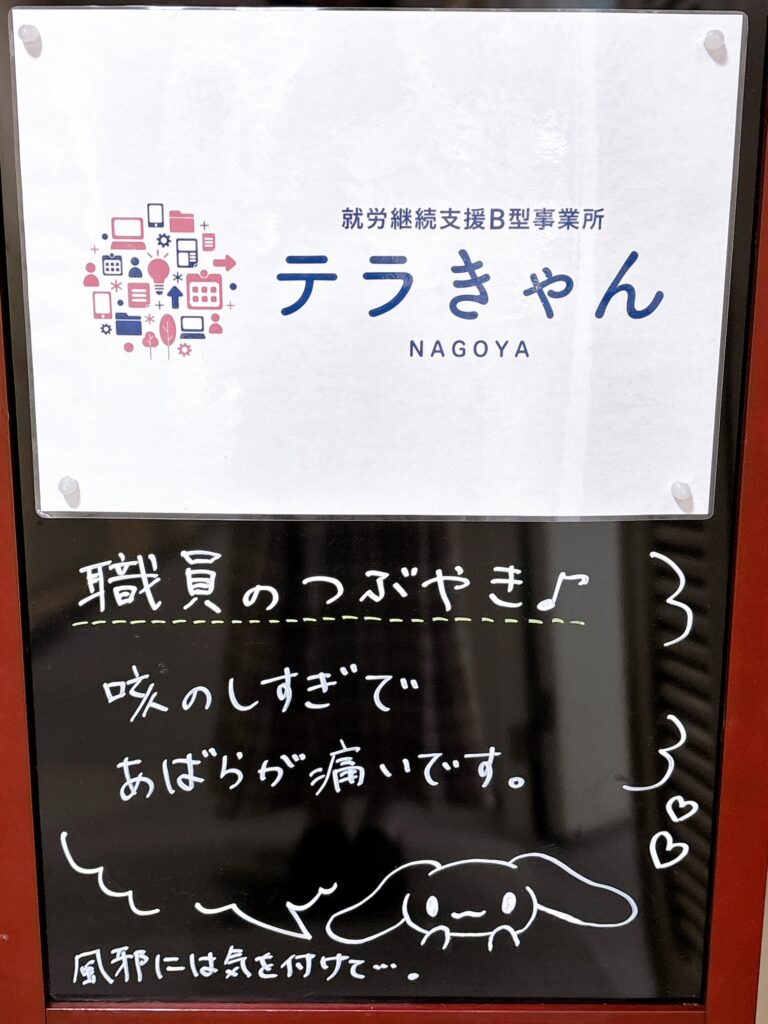 就労継続支援B型事業所
テラきゃん
NAGOYA
職員のつぶやき♪
咳のしすぎで
あばらが痛いです。
風邪には気を付けて…。